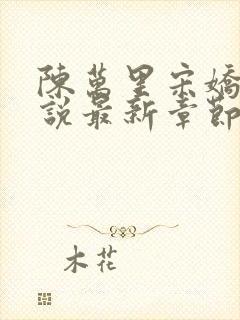 陳萬里宋嬌
說最新章節
木花